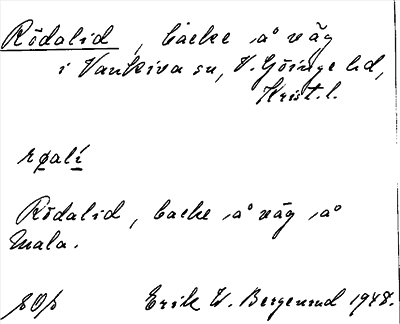 Rödalid, backe å väg
i Vankiva sn, V. Göinge hd,
Krist. l.
røalí
Rödalid, backe å väg å
Mala.
Erik W. Bergenrud 1948.